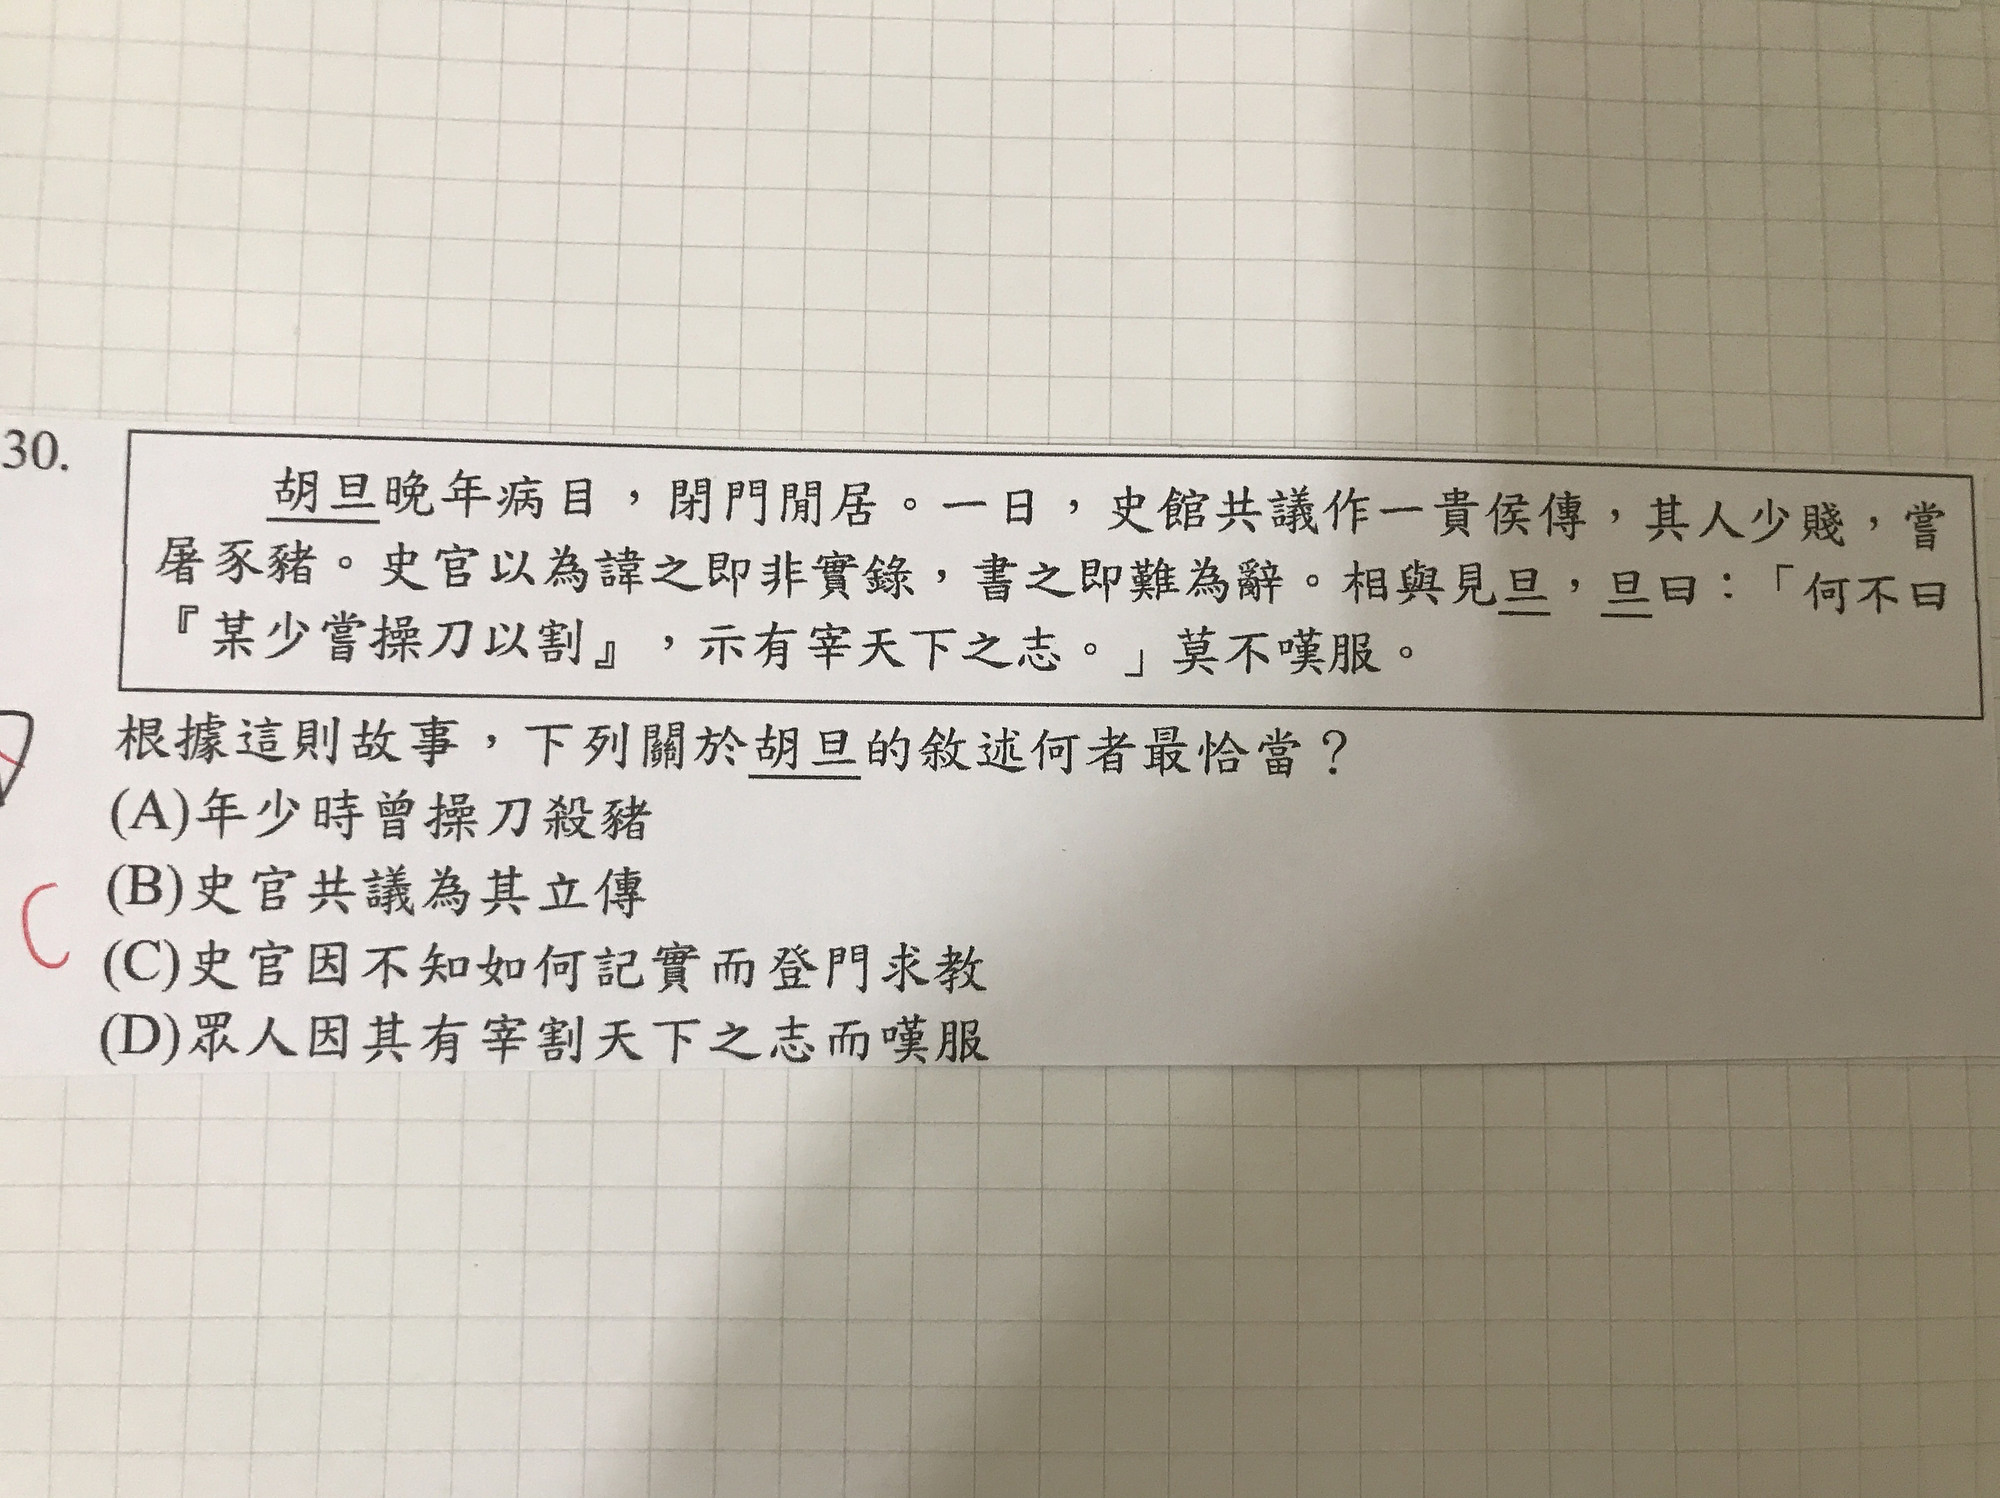 30.
胡旦晚年病目，閉門閒居。一日，史館共議作一貴侯傳，其人少賤，嘗
屠豕豬。史官以為諱之即非實錄，書之即難為辭。相與見旦，旦曰：「何不曰
『某少嘗操刀以割』，示有宰天下之志。」莫不嘆服。
根據這則故事，下列關於胡旦的敘述何者最恰當？
(A)年少時曾操刀殺豬
(B)史官共議為其立傳
C
(C)史官因不知如何記實而登門求教
(D)眾人因其有宰割天下之志而嘆服